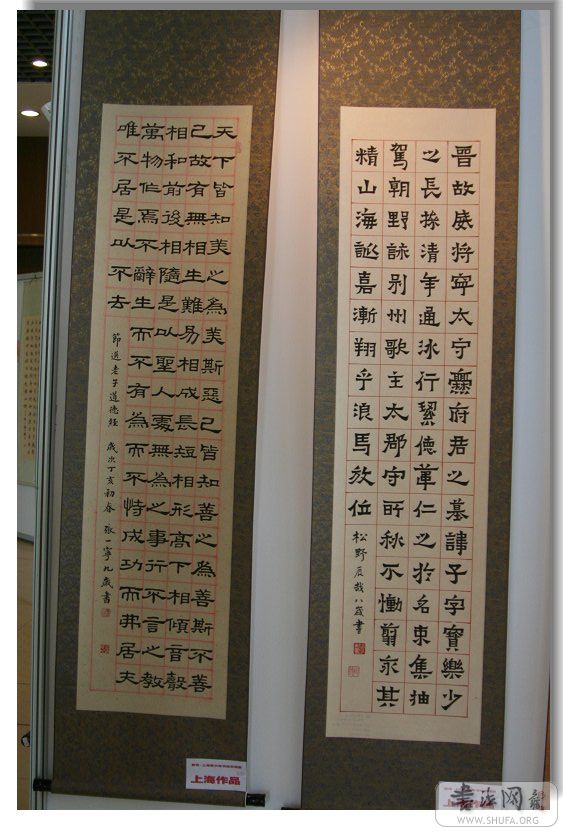 天下皆知美之為美斯惡已皆知善之為善斯不善
已故有無相生難易相成長短相形高下相傾音聲
相和前後相隨是以聖人處無為之事行不言之教
萬物作焉不辭生而不有為而不恃成功而弗居夫
唯不居是以不去
節選老子道德經 歲次丁亥初春 張一寧九歲書
上海作品
晉故威將寧太守爨府君之墓諱子字寶樂少
之長操清年通冰行絜德葦仁之於名束集抽
駕朝野詠別州歌主太郡守所秋不慟翦永其
精山海誕嘉漸翔乎浪馬放位
松野辰哉八歲書
上海作品
书法网
WWW.SHUFA.ORG